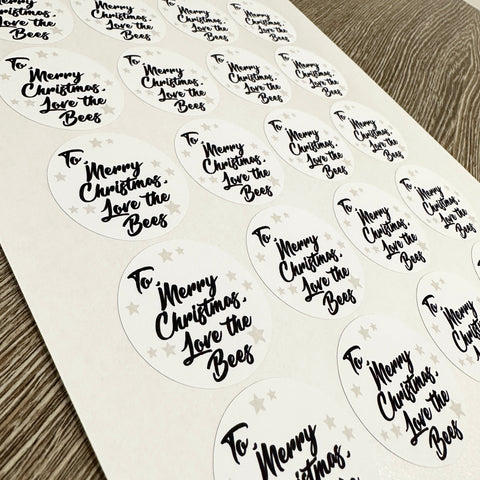 Christmas,
Love the
Bees
Love the
Bees
Christmas,
Love the
Bees
Merry
Christmas,
Love the
Bees
To,
Merry
Christmas,
Love the
Bees
To,
Merry
Christmas,
Love the
Bees
To,
Merry
Christmas,
Love the
Bees
To,
Merry
Christmas,
Love the
Bees
To,
Merry
Christmas,
Love the
Bees
To,
Merry
Christmas,
Love the
Bees
To,
Merry
Christmas,
Love the
Bees
To,
Merry
Christmas,
Love the
Bees
To,
Merry
Christmas,
Love the
Bees
To,
Merry
Christmas,
Love the
Bees
To,
Merry
Christmas,
Love the
Bees
To,
Merry
Christmas,
Love the
Bees
To,
Merry
Christmas,
To,
Merry
Christmas,
Love the
Bees
To,
Merry
Christmas,
Love the